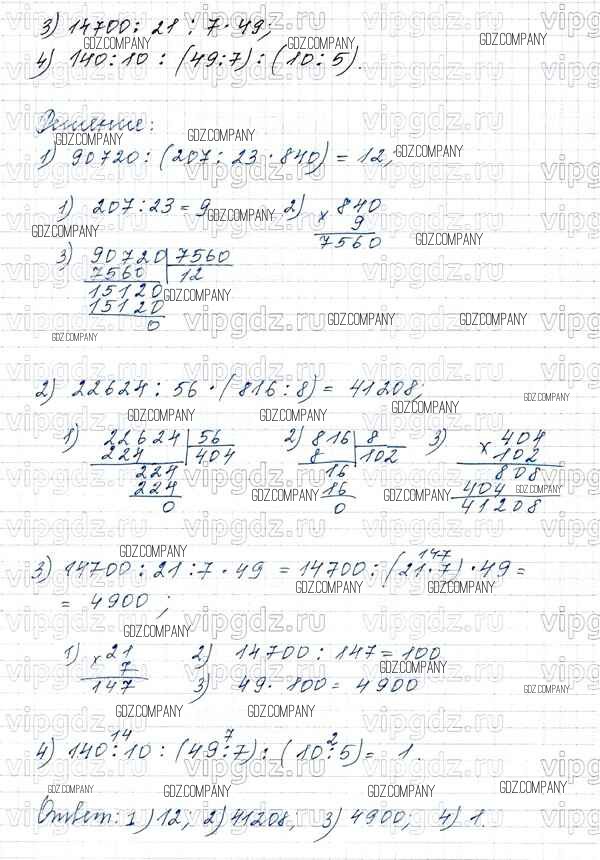 3) 14700 : 21 : 7 · 49;
4) 140 : 10 : (49 : 7) : (10 : 5).
Решение:
1) 90720 : (207 : 23 · 840) = 12,
1) 207 : 23 = 9 2) × 840
9
7560
3) 90720 7560
7560 12
15120
15120
0
2) 22624 : 56 · (816 : 8) = 41208;
1) 22624 56 2) 816 8 3) × 404
224 404 8 102 102
224 16 808
224 16 404
0 0 41208
147
3) 14700 : 21 : 7 · 49 = 14700 : (21 · 7) · 49 =
= 4900;
1) × 21 2) 14700 : 147 = 100
7
147 3) 49 · 100 = 4900
14 7 2
4) 140 : 10 : (49 : 7) : (10 : 5) = 1.
Ответ: 1) 12, 2) 41208, 3) 4900; 4) 1.
GDZ.COMPANY
vipgdz.ru